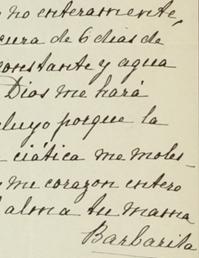 no enteramente,
cura de 6 dias de
constante y agua
Dios me hará
cluyo porque la
ciática me moles-
mi corazon entero
alma tu mama
Barbarita